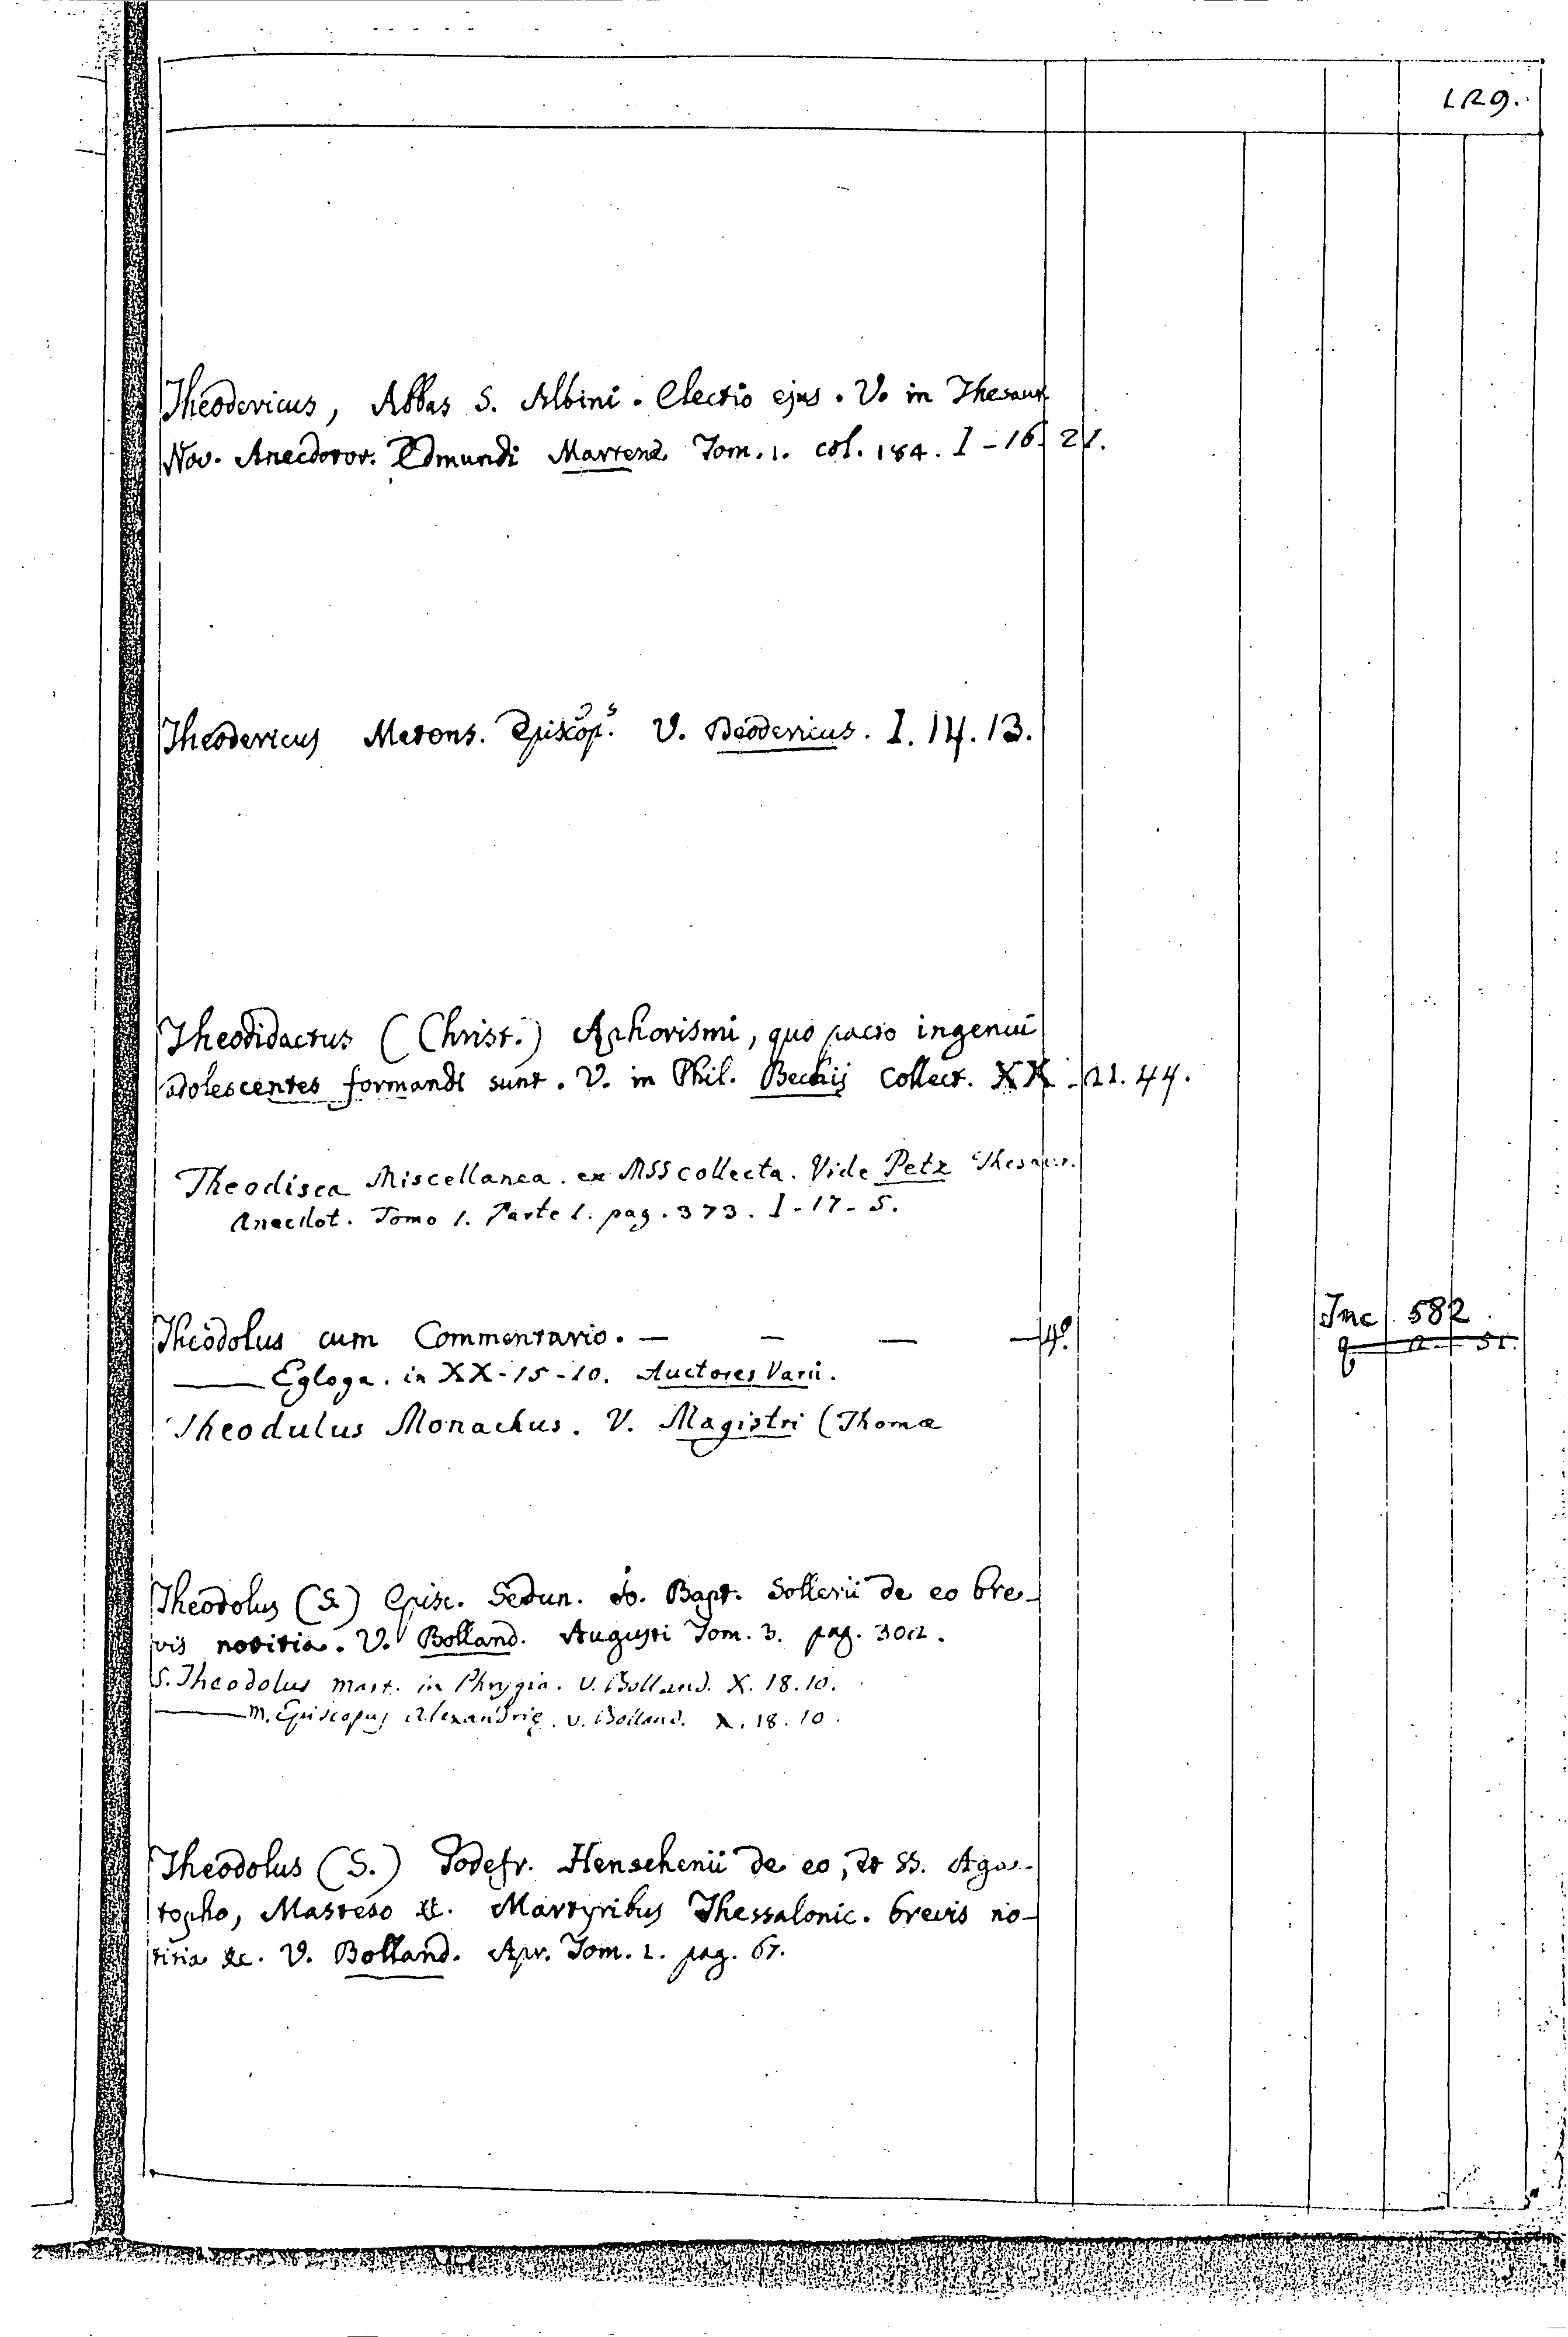 129.
Theodericus, Abbas S. Albini. Electio ejus. V. in Thesaur.
Nov. Anecdotor. Edmundi Martene Tom. 1. col. 184. I-16-21.
Theodericus Metens. Episcop.s V. Deodericus. I. 14. 13.
Theodidactus (Christ.) Aphorismi, quo pacto ingenui
adolescentes formandi sunt. V. in Phil. Bechij Collect. XX-21.44.
Theodisca Miscellanea. ex MSS collecta. Vide Petz Thesaur.
Anecdot. Tomo 1. Parte 1. pag. 373. I-17-5.
Theodolus cum Commentario. — — — — 4º. Inc 582
q 2 51.
—— Egloga. in XX-15-10. Auctores Varii.
Theodulus Monachus. V. Magistri (Thomæ
Theodolus (S.) Episc. Sedun. Jo. Bapt. Sollerii de eo bre-
vis notitia. V. Bolland. Augusti Tom. 3. pag. 302.
S. Theodolus mart. in Phrygia. v. Bolland. X. 18. 10.
—— m. Episcopus Alexandrię. v. Bolland. X. 18. 10.
Theodolus (S.) Godefr. Henschenii de eo, et SS. Aga-
topho, Masteso &c. Martyribus Thessalonic. brevis no-
titia &c. V. Bolland. Apr. Tom. 1. pag. 67.